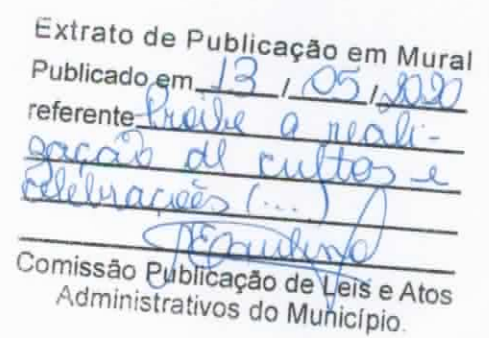 Extrato de Publicação em Mural
Publicado em 13 / 05 / 2020
referente Proibe a reali-
zação de cultos e
celebrações (...)
Comissão Publicação de Leis e Atos
Administrativos do Município.